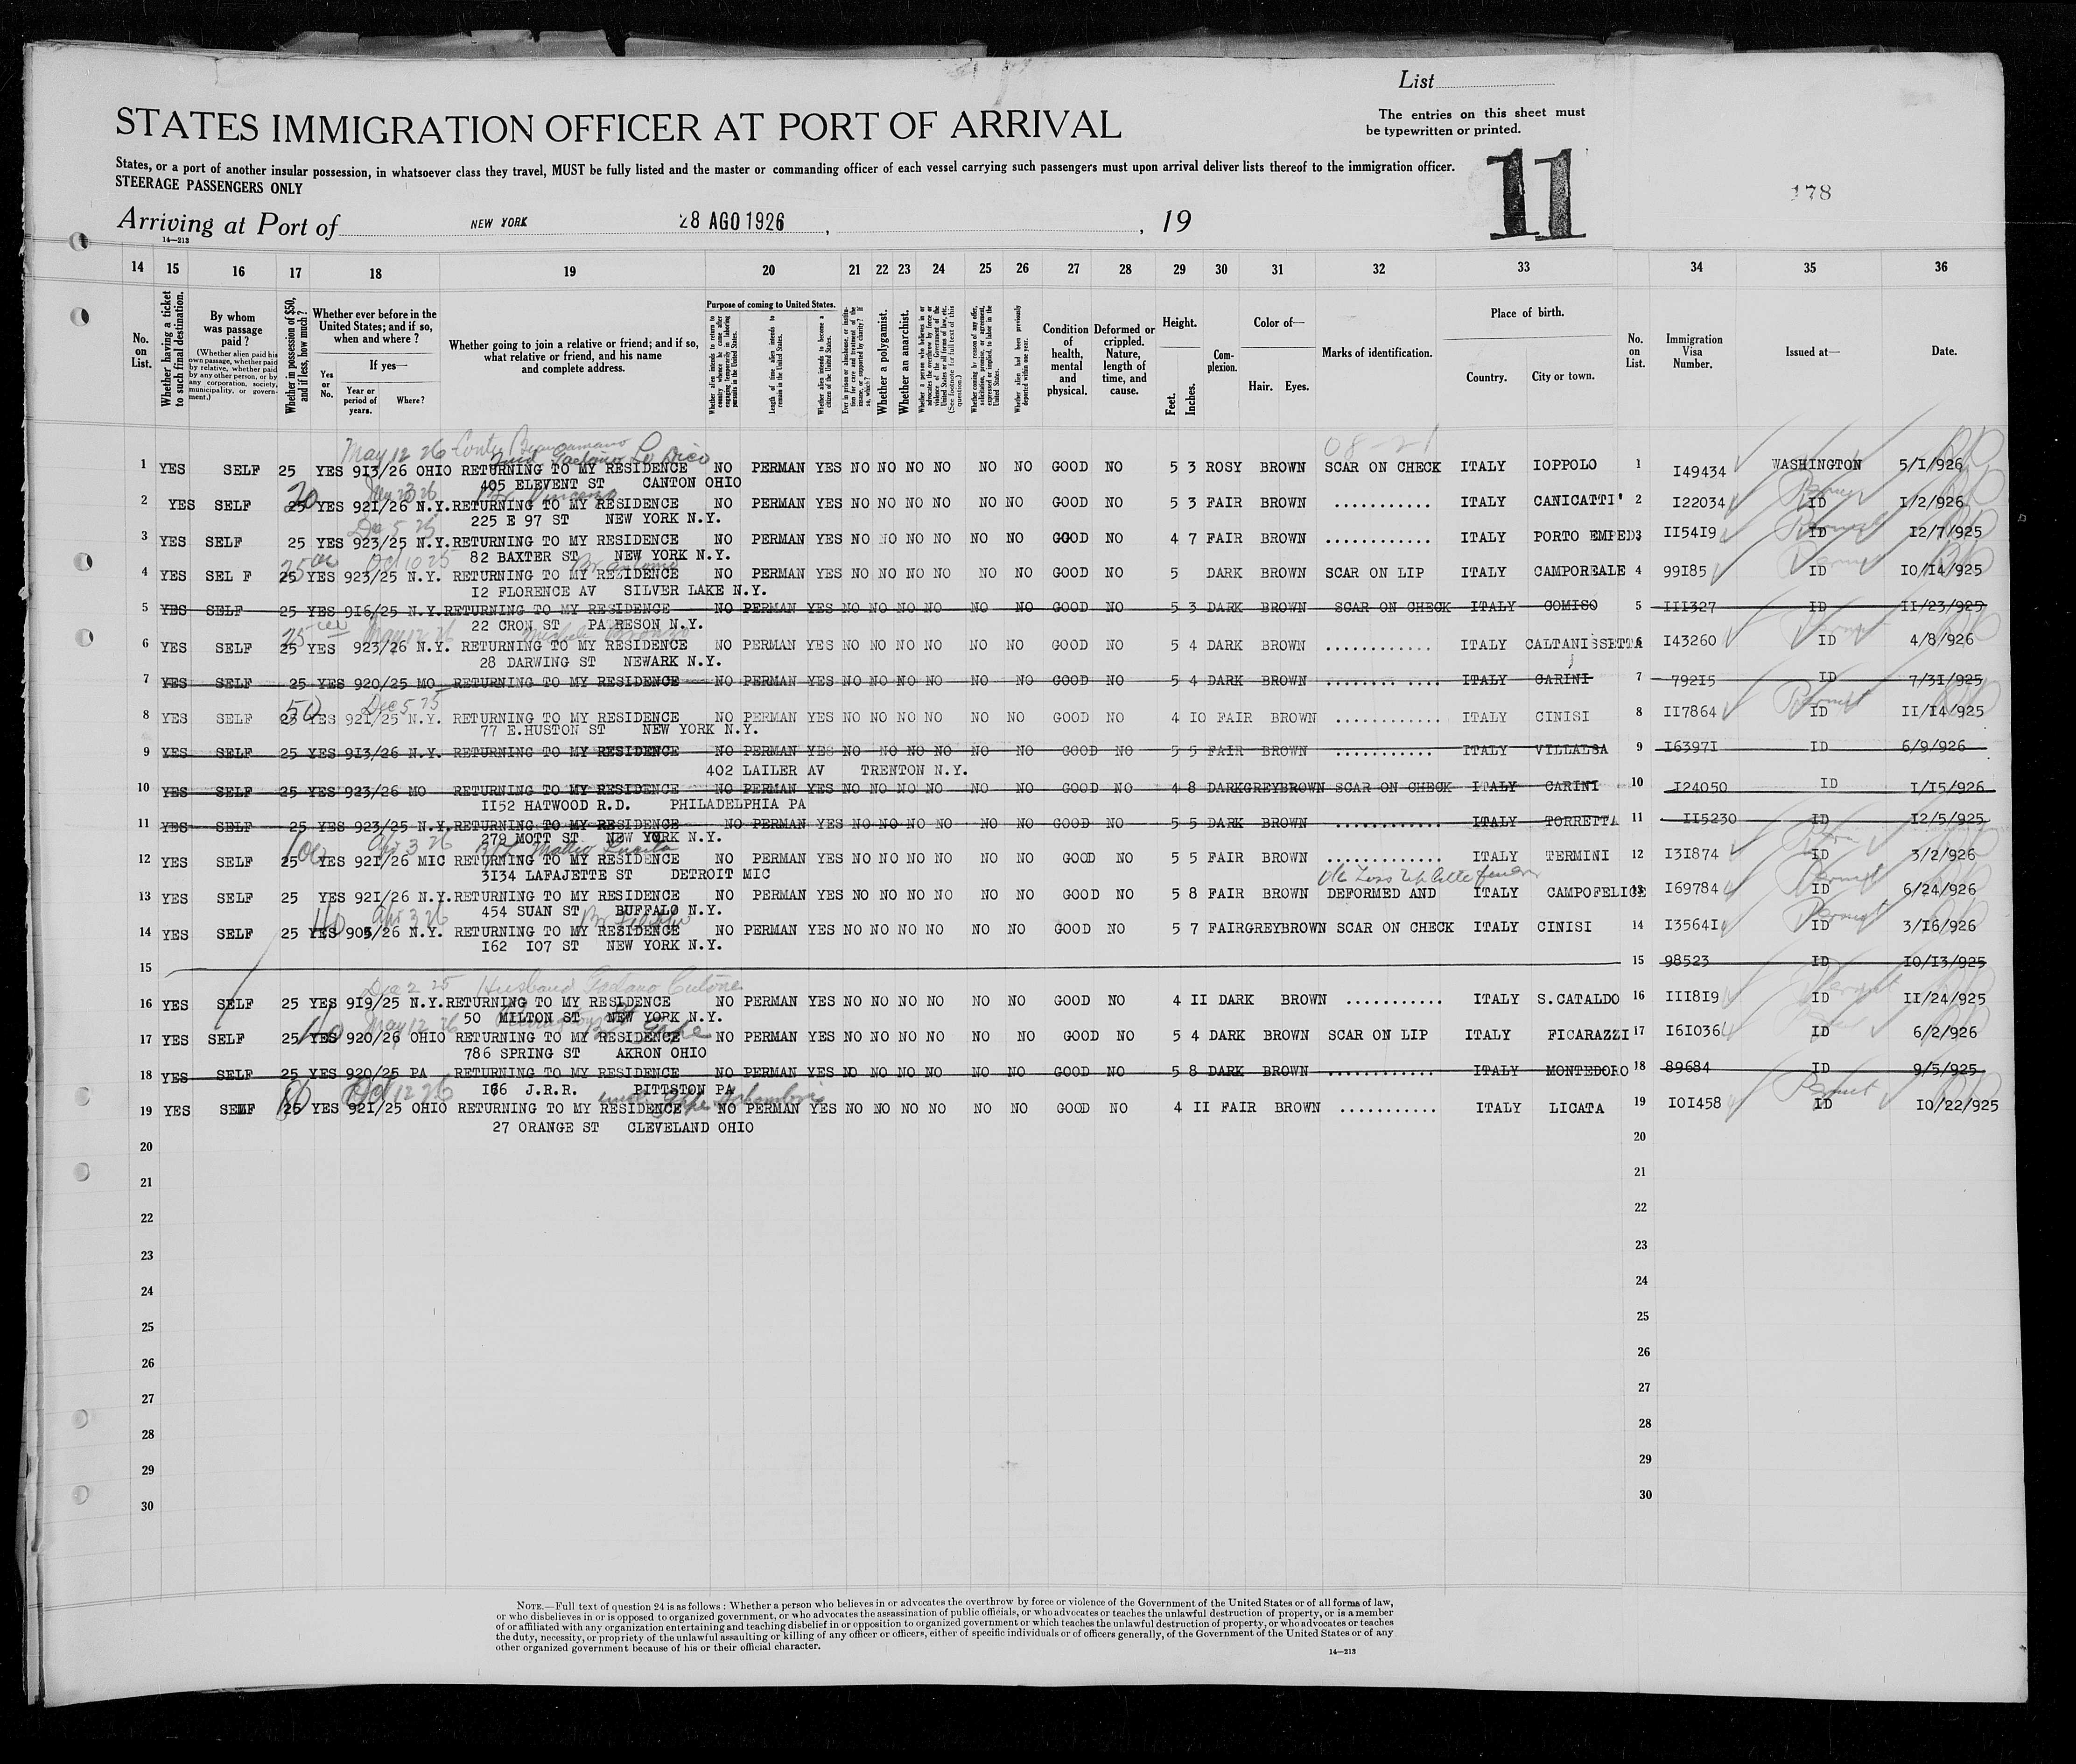 List
The entries on this sheet must
be typewritten or printed.
STATES IMMIGRATION OFFICER AT PORT OF ARRIVAL
States, or a port of another insular possession, in whatsoever class they travel, MUST be fully listed and the master or commanding officer of each vessel carrying such passengers must upon arrival deliver lists thereof to the immigration officer.
STEERAGE PASSENGERS ONLY
11
178
Arriving at Port of NEW YORK 28 AGO 1926 , , 19
14—213
14 15 16 17 18 19 20 21 22 23 24 25 26 27 28 29 30 31 32 33 34 35 36
No. on List.
Whether having a ticket to such final destination.
By whom was passage paid?
(Whether alien paid his own passage, whether paid by relative, whether paid by any other person, or by any corporation, society, municipality, or government.)
Whether in possession of $50, and if less, how much?
Whether ever before in the United States; and if so, when and where?
If yes—
Yes or No.
Year or period of years.
Where?
Whether going to join a relative or friend; and if so, what relative or friend, and his name and complete address.
Purpose of coming to United States.
Whether alien intends to return to country whence he came after engaging temporarily in laboring pursuits in the United States.
Length of time alien intends to remain in the United States.
Whether alien intends to become a citizen of the United States.
Whether a polygamist.
Whether an anarchist.
Condition of health, mental and physical.
Deformed or crippled. Nature, length of time, and cause.
Height.
Feet.
Inches.
Complexion.
Color of—
Hair. Eyes.
Marks of identification.
Place of birth.
Country. City or town.
No. on List.
Immigration Visa Number.
Issued at—
Date.
May 12 26
1 YES SELF 25 YES 9I3/26 OHIO RETURNING TO MY RESIDENCE NO PERMAN YES NO NO NO NO NO NO GOOD NO 5 3 ROSY BROWN SCAR ON CHECK ITALY IOPPOLO 1 I49434 WASHINGTON 5/I/926
405 ELEVENT ST CANTON OHIO
2 YES SELF 25 YES 92I/26 N.Y.RETURNING TO MY RESIDENCE NO PERMAN YES NO NO NO NO NO NO GOOD NO 5 3 FAIR BROWN ............ ITALY CANICATTI' 2 I22034 ID I/2/926
225 E 97 ST NEW YORK N.Y.
Dec 5 25
3 YES SELF 25 YES 923/25 N.Y.RETURNING TO MY RESIDENCE NO PERMAN YES NO NO NO NO NO NO GOOD NO 4 7 FAIR BROWN ............ ITALY PORTO EMPED 3 II54I9 ID I2/7/925
82 BAXTER ST NEW YORK N.Y.
Oct 10 25
4 YES SEL F 25 YES 923/25 N.Y. RETURNING TO MY RESIDENCE NO PERMAN YES NO NO NO NO NO NO GOOD NO 5 DARK BROWN SCAR ON LIP ITALY CAMPOREALE 4 99I85 ID IO/I4/925
I2 FLORENCE AV SILVER LAKE N.Y.
5 YES SELF 25 YES 9I6/25 N.Y.RETURNING TO MY RESIDENCE NO PERMAN YES NO NO NO NO NO NO GOOD NO 5 3 DARK BROWN SCAR ON CHECK ITALY COMISO 5 III327 ID II/23/925
22 CRON ST PATRESON N.Y.
May 12 26
6 YES SELF 25 YES 923/26 N.Y. RETURNING TO MY RESIDENCE NO PERMAN YES NO NO NO NO NO NO GOOD NO 5 4 DARK BROWN ............ ITALY CALTANISSETTA 6 I43260 ID 4/8/926
28 DARWING ST NEWARK N.Y.
7 YES SELF 25 YES 920/25 MO RETURNING TO MY RESIDENCE NO PERMAN YES NO NO NO NO NO NO GOOD NO 5 4 DARK BROWN ........ .... ITALY CARINI 7 792I5 ID 7/3I/925
50 Dec 5 25
8 YES SELF 25 YES 92I/25 N.Y. RETURNING TO MY RESIDENCE NO PERMAN YES NO NO NO NO NO NO GOOD NO 4 IO FAIR BROWN ............ ITALY CINISI 8 II7864 ID II/I4/925
77 E.HUSTON ST NEW YORK N.Y.
9 YES SELF 25 YES 9I3/26 N.Y. RETURNING TO MY RESIDENCE NO PERMAN YES NO NO NO NO NO NO GOOD NO 5 5 FAIR BROWN ............ ITALY VILLALBA 9 I6397I ID 6/9/926
402 LAILER AV TRENTON N.Y.
10 YES SELF 25 YES 923/26 MO RETURNING TO MY RESIDENCE NO PERMAN YES NO NO NO NO NO NO GOOD NO 4 8 DARKGREYBROWN SCAR ON CHECK ITALY CARINI 10 I24050 ID I/I5/926
II52 HATWOOD R.D. PHILADELPHIA PA
11 YES SELF 25 YES 923/25 N.Y.RETURNING TO MY RESIDENCE NO PERMAN YES NO NO NO NO NO NO GOOD NO 5 5 DARK BROWN ............ ITALY TORRETTA 11 II5230 ID I2/5/925
279 MOTT ST NEW YORK N.Y.
12 YES SELF 25 YES 92I/26 MIC RETURNING TO MY RESIDENCE NO PERMAN YES NO NO NO NO NO NO GOOD NO 5 5 FAIR BROWN ............. ITALY TERMINI 12 I3I874 ID 3/2/926
3I34 LAFAJETTE ST DETROIT MIC
13 YES SELF 25 YES 92I/26 N.Y.RETURNING TO MY RESIDENCE NO PERMAN YES NO NO NO NO NO NO GOOD NO 5 8 FAIR BROWN DEFORMED AND ITALY CAMPOFELICE 13 I69784 ID 6/24/926
454 SUAN ST BUFFALO N.Y.
14 YES SELF 25 YES 905/26 N.Y. RETURNING TO MY RESIDENCE NO PERMAN YES NO NO NO NO NO NO GOOD NO 5 7 FAIRGREYBROWN SCAR ON CHECK ITALY CINISI 14 I3564I ID 3/I6/926
I62 I07 ST NEW YORK N.Y.
15 15 98523 ID IO/I3/925
Dec 2 25 Husband Gaetano Cutone
16 YES SELF 25 YES 9I9/25 N.Y.RETURNING TO MY RESIDENCE NO PERMAN YES NO NO NO NO NO NO GOOD NO 4 II DARK BROWN ........... ITALY S.CATALDO 16 III8I9 ID II/24/925
50 MILTON ST NEW YORK N.Y.
40 May 12 26
17 YES SELF 25 YES 920/26 OHIO RETURNING TO MY RESIDENCE NO PERMAN YES NO NO NO NO NO NO GOOD NO 5 4 DARK BROWN SCAR ON LIP ITALY FICARAZZI 17 I6I036 ID 6/2/926
786 SPRING ST AKRON OHIO
18 YES SELF 25 YES 920/25 PA RETURNING TO MY RESIDENCE NO PERMAN YES NO NO NO NO NO NO GOOD NO 5 8 DARK BROWN ............ ITALY MONTEDORO 18 89684 ID 9/5/925
I66 J.R.R. PITTSTON PA
19 YES SELF 25 YES 92I/25 OHIO RETURNING TO MY RESIDENCE NO PERMAN YES NO NO NO NO NO NO GOOD NO 4 II FAIR BROWN ........... ITALY LICATA 19 IOI458 ID IO/22/925
27 ORANGE ST CLEVELAND OHIO
20 20
21 21
22 22
23 23
24 24
25 25
26 26
27 27
28 28
29 29
30 30
NOTE.—Full text of question 24 is as follows: Whether a person who believes in or advocates the overthrow by force or violence of the Government of the United States or of all forms of law,
or who disbelieves in or is opposed to organized government, or who advocates the assassination of public officials, or who advocates or teaches the unlawful destruction of property, or is a member
of or affiliated with any organization entertaining and teaching disbelief in or opposition to organized government or which teaches the unlawful destruction of property, or who advocates or teaches
the duty, necessity, or propriety of the unlawful assaulting or killing of any officer or officers, either of specific individuals or of officers generally, of the Government of the United States or of any
other organized government because of his or their official character.
14—213